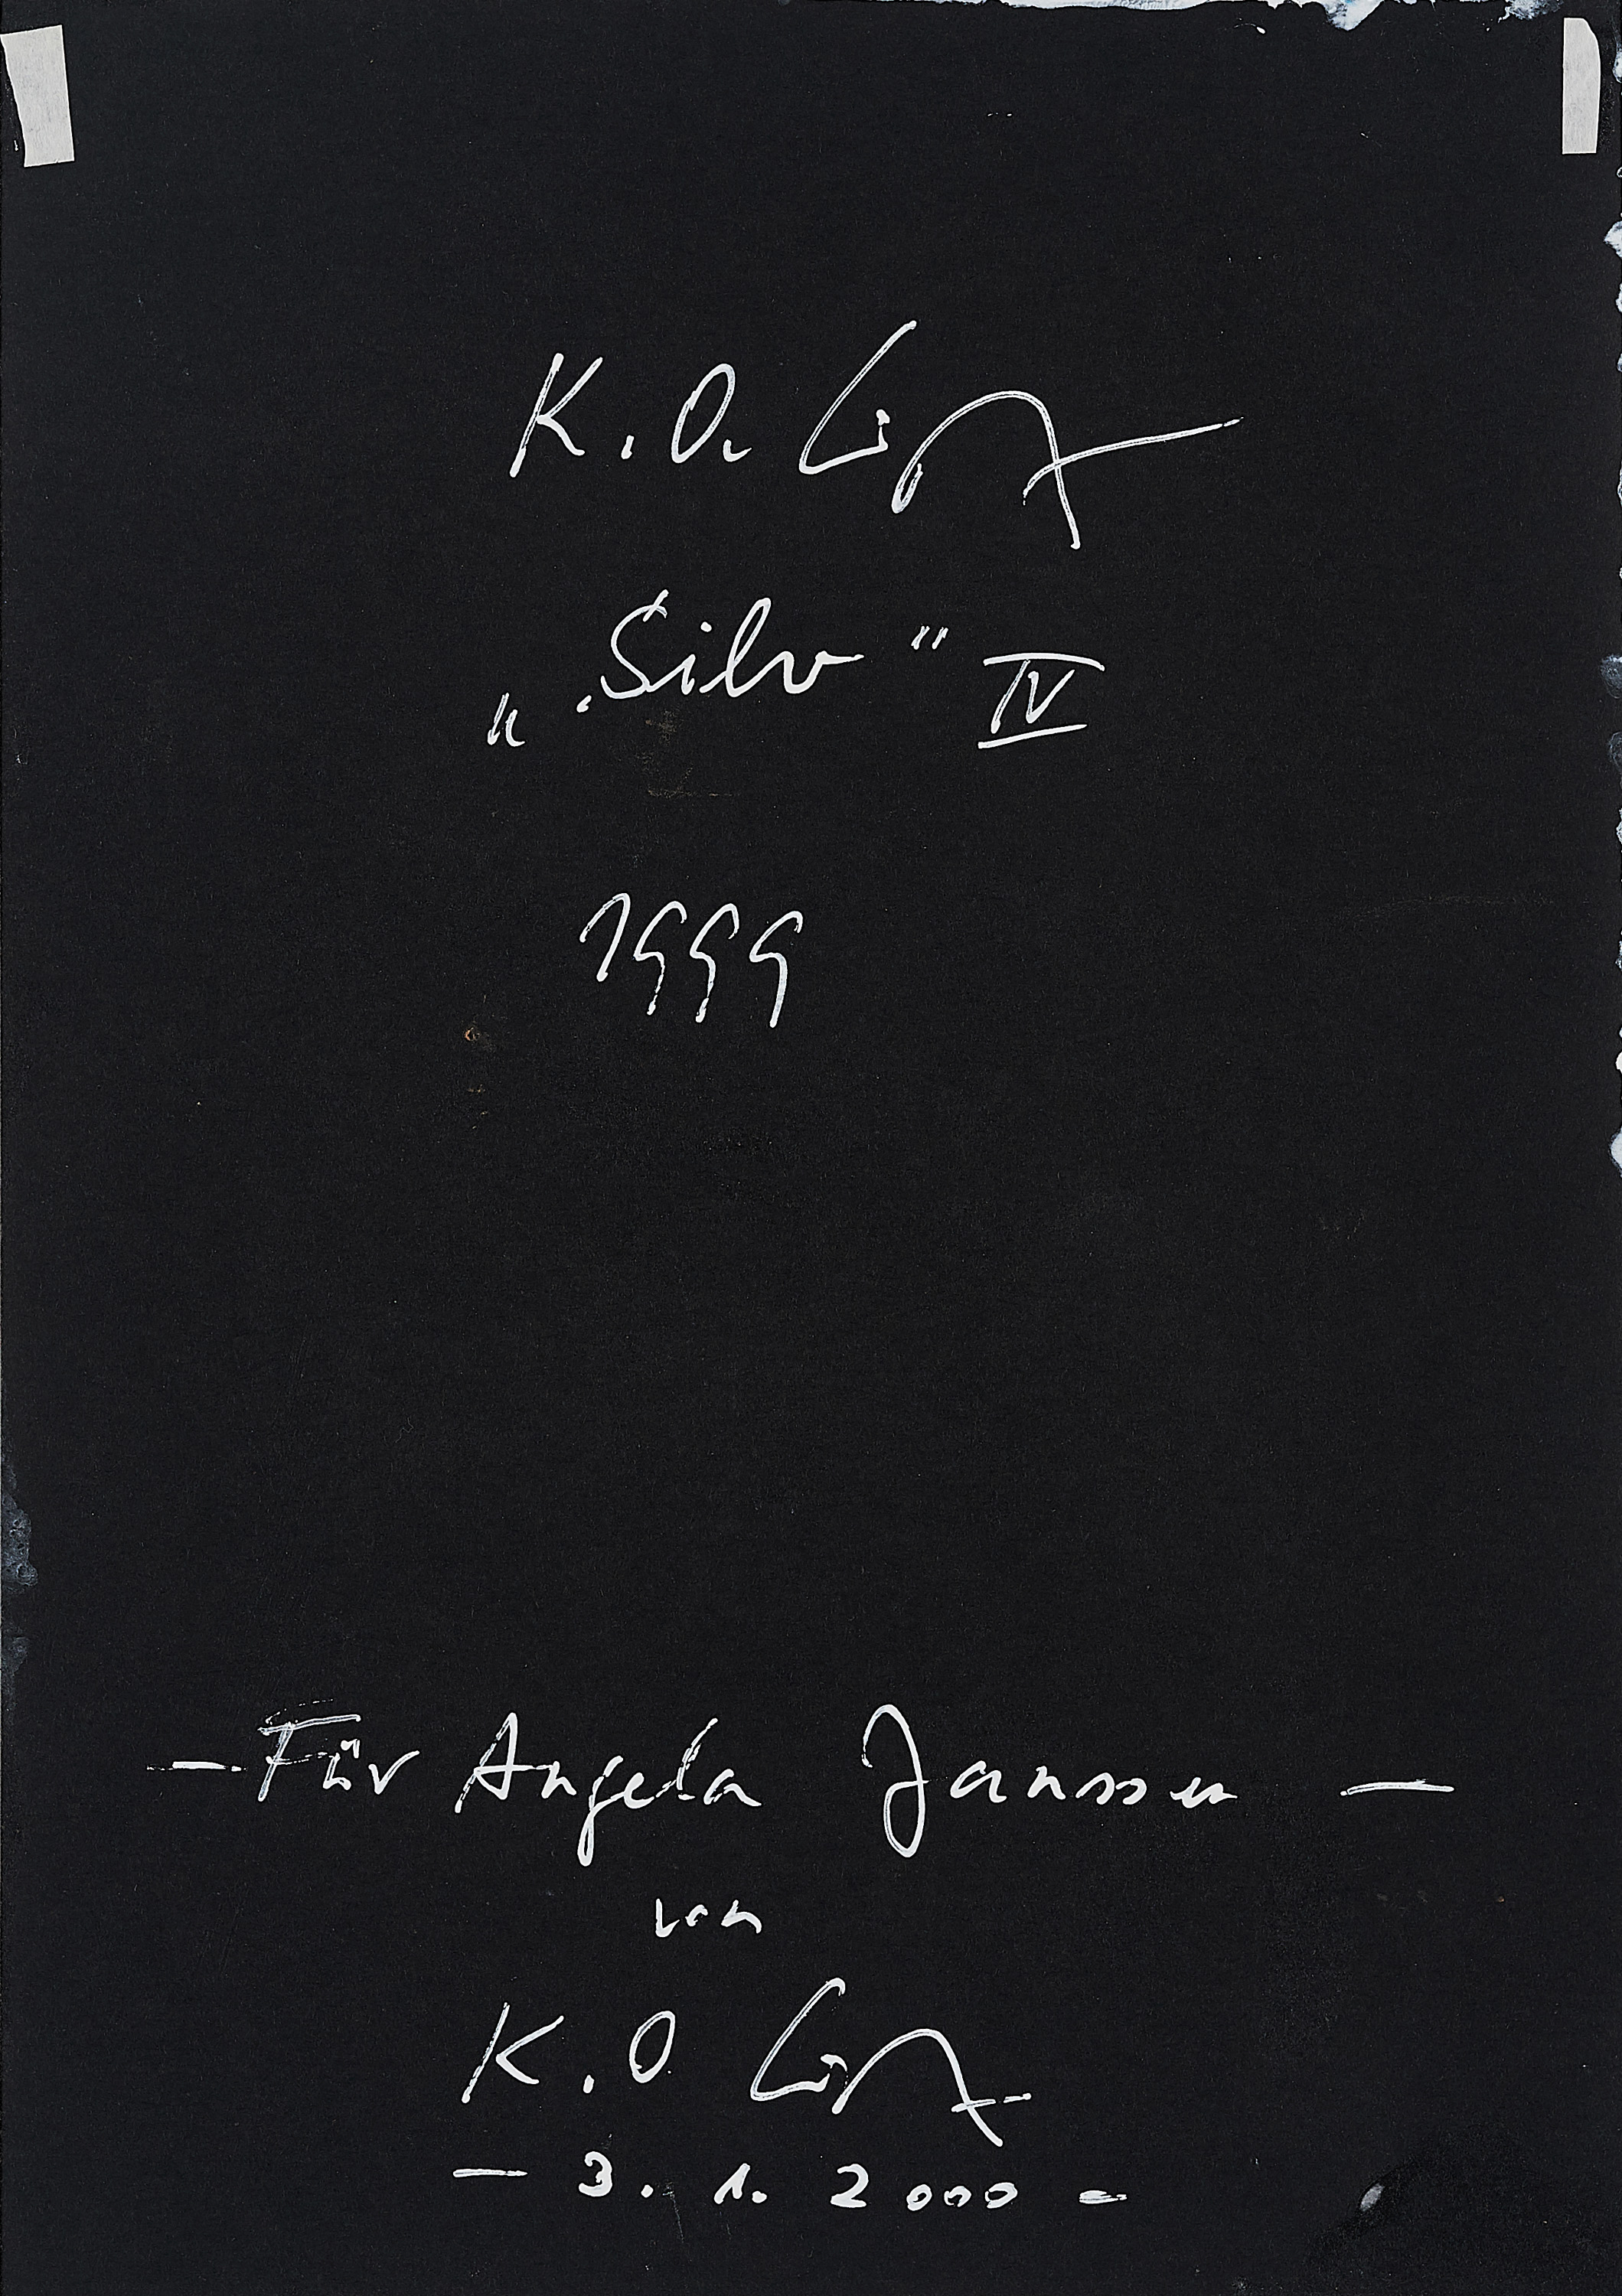 K.O. Götz
„Silv" IV
1999
— Für Angela Janssen —
von
K.O Götz
— 3. 1. 2000 —